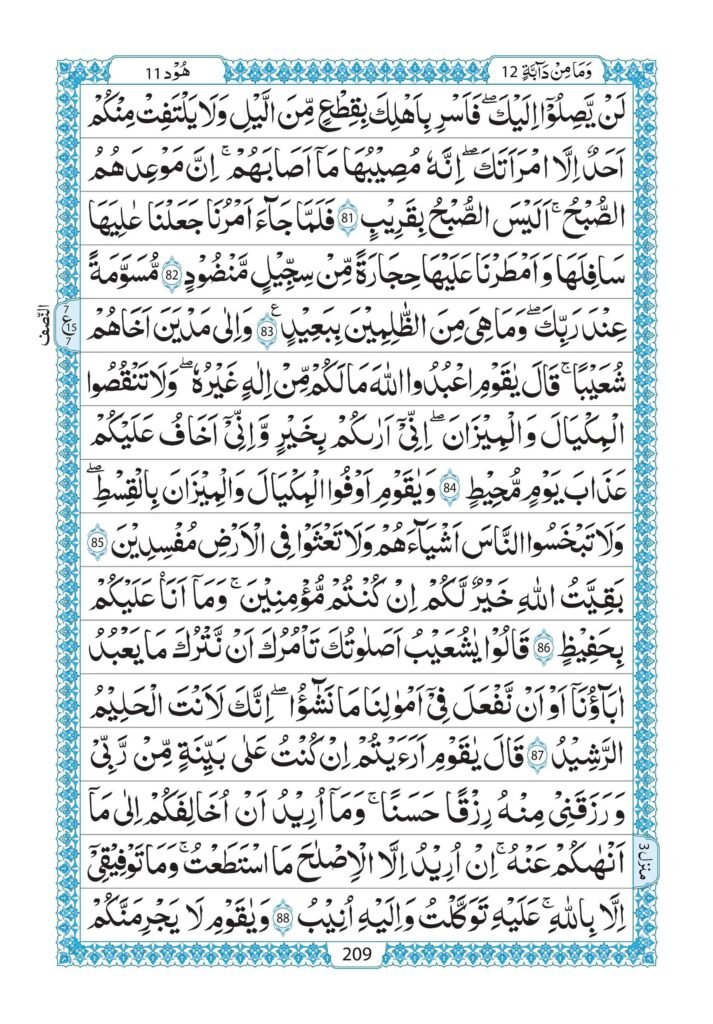 وَمَا مِنْ دَآبَّةٍ 12
هُوْد 11
لَنْ يَّصِلُوْۤا اِلَيْكَ ۖ فَاَسْرِ بِاَهْلِكَ بِقِطْعٍ مِّنَ الَّيْلِ وَلَا يَلْتَفِتْ مِنْكُمْ
اَحَدٌ اِلَّا امْرَاَتَكَ ۖ اِنَّهٗ مُصِيْبُهَا مَاۤ اَصَابَهُمْ ۚ اِنَّ مَوْعِدَهُمُ
الصُّبْحُ ۚ اَلَيْسَ الصُّبْحُ بِقَرِيْبٍ 81 فَلَمَّا جَآءَ اَمْرُنَا جَعَلْنَا عَلِيَهَا
سَافِلَهَا وَاَمْطَرْنَا عَلَيْهَا حِجَارَةً مِّنْ سِجِّيْلٍ مَّنْضُوْدٍ 82 مُّسَوَّمَةً
عِنْدَ رَبِّكَ ۖ وَمَا هِىَ مِنَ الظّٰلِمِيْنَ بِبَعِيْدٍ ع 83 وَاِلٰى مَدْيَنَ اَخَاهُمْ
النّصف
7 ع 15 7
شُعَيْبًا ۚ قَالَ يٰقَوْمِ اعْبُدُوا اللّٰهَ مَا لَكُمْ مِّنْ اِلٰهٍ غَيْرُهٗ ۖ وَلَا تَنْقُصُوا
الْمِكْيَالَ وَالْمِيْزَانَ ۖ اِنِّىْۤ اَرٰىكُمْ بِخَيْرٍ وَّاِنِّىْۤ اَخَافُ عَلَيْكُمْ
عَذَابَ يَوْمٍ مُّحِيْطٍ 84 وَيٰقَوْمِ اَوْفُوا الْمِكْيَالَ وَالْمِيْزَانَ بِالْقِسْطِ ۖ
وَلَا تَبْخَسُوا النَّاسَ اَشْيَآءَهُمْ وَلَا تَعْثَوْا فِى الْاَرْضِ مُفْسِدِيْنَ 85
بَقِيَّتُ اللّٰهِ خَيْرٌ لَّكُمْ اِنْ كُنْتُمْ مُّؤْمِنِيْنَ ۚ وَمَاۤ اَنَا۠ عَلَيْكُمْ
بِحَفِيْظٍ 86 قَالُوْا يٰشُعَيْبُ اَصَلٰوتُكَ تَاْمُرُكَ اَنْ نَّتْرُكَ مَا يَعْبُدُ
اٰبَآؤُنَاۤ اَوْ اَنْ نَّفْعَلَ فِىْۤ اَمْوٰلِنَا مَا نَشٰٓؤُا ۖ اِنَّكَ لَاَنْتَ الْحَلِيْمُ
الرَّشِيْدُ 87 قَالَ يٰقَوْمِ اَرَءَيْتُمْ اِنْ كُنْتُ عَلٰى بَيِّنَةٍ مِّنْ رَّبِّىْ
وَرَزَقَنِىْ مِنْهُ رِزْقًا حَسَنًا ۚ وَمَاۤ اُرِيْدُ اَنْ اُخَالِفَكُمْ اِلٰى مَاۤ
اَنْهٰىكُمْ عَنْهُ ۚ اِنْ اُرِيْدُ اِلَّا الْاِصْلٰحَ مَا اسْتَطَعْتُ ۚ وَمَا تَوْفِيْقِىْۤ
منزل 3
اِلَّا بِاللّٰهِ ۚ عَلَيْهِ تَوَكَّلْتُ وَاِلَيْهِ اُنِيْبُ 88 وَيٰقَوْمِ لَا يَجْرِمَنَّكُمْ
209